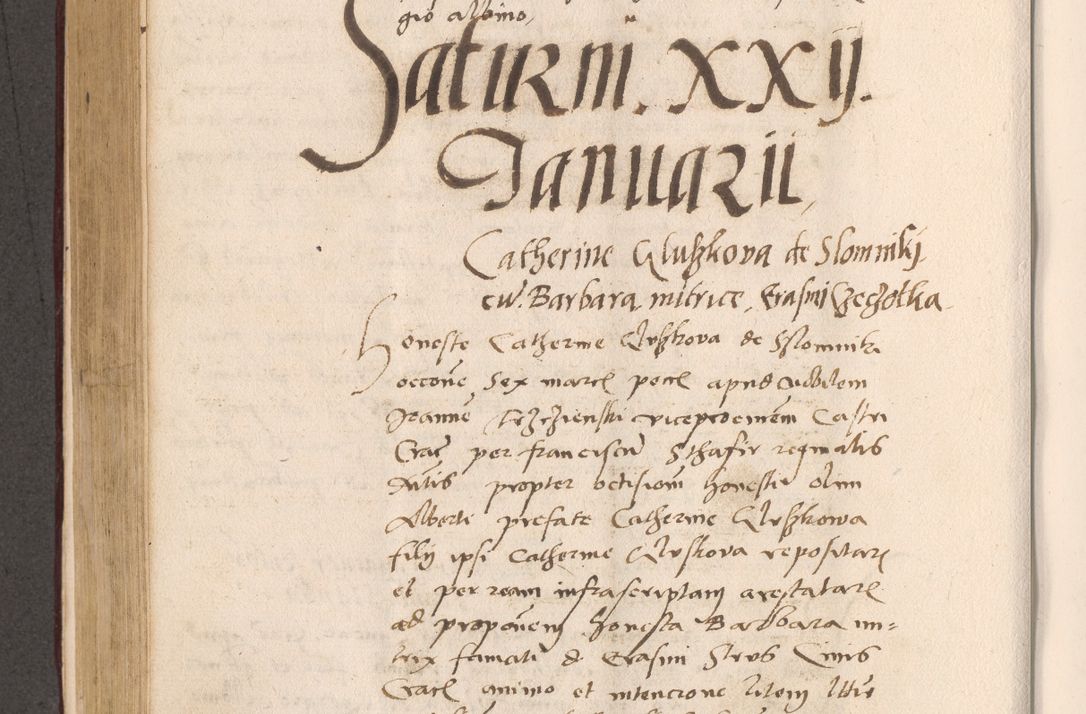 gio albino,
Saturni. XXij.
Ianuarii,
Catherine Gluszkova de Slomniki
cu. Barbara nutrice. Erasmi Czeczotka
Honeste Catherine Gluszkova de Sslomnika
occone Sex marc pecl apud nobilem
Joanne Trzczienski viceprocinem Castri
Crac per franciscu Sthafir reginalis
Artis propter occisiom honesti olim
Alberti prefate Catherine Gluszkowa
filij ipsi Catherine Gluskova repositarum
et per ream infrascriptam arestatarum
ad proponem honesta Barbara nu=
trix famati d Erasmi Strus Civis
Crac animo et intencione litem